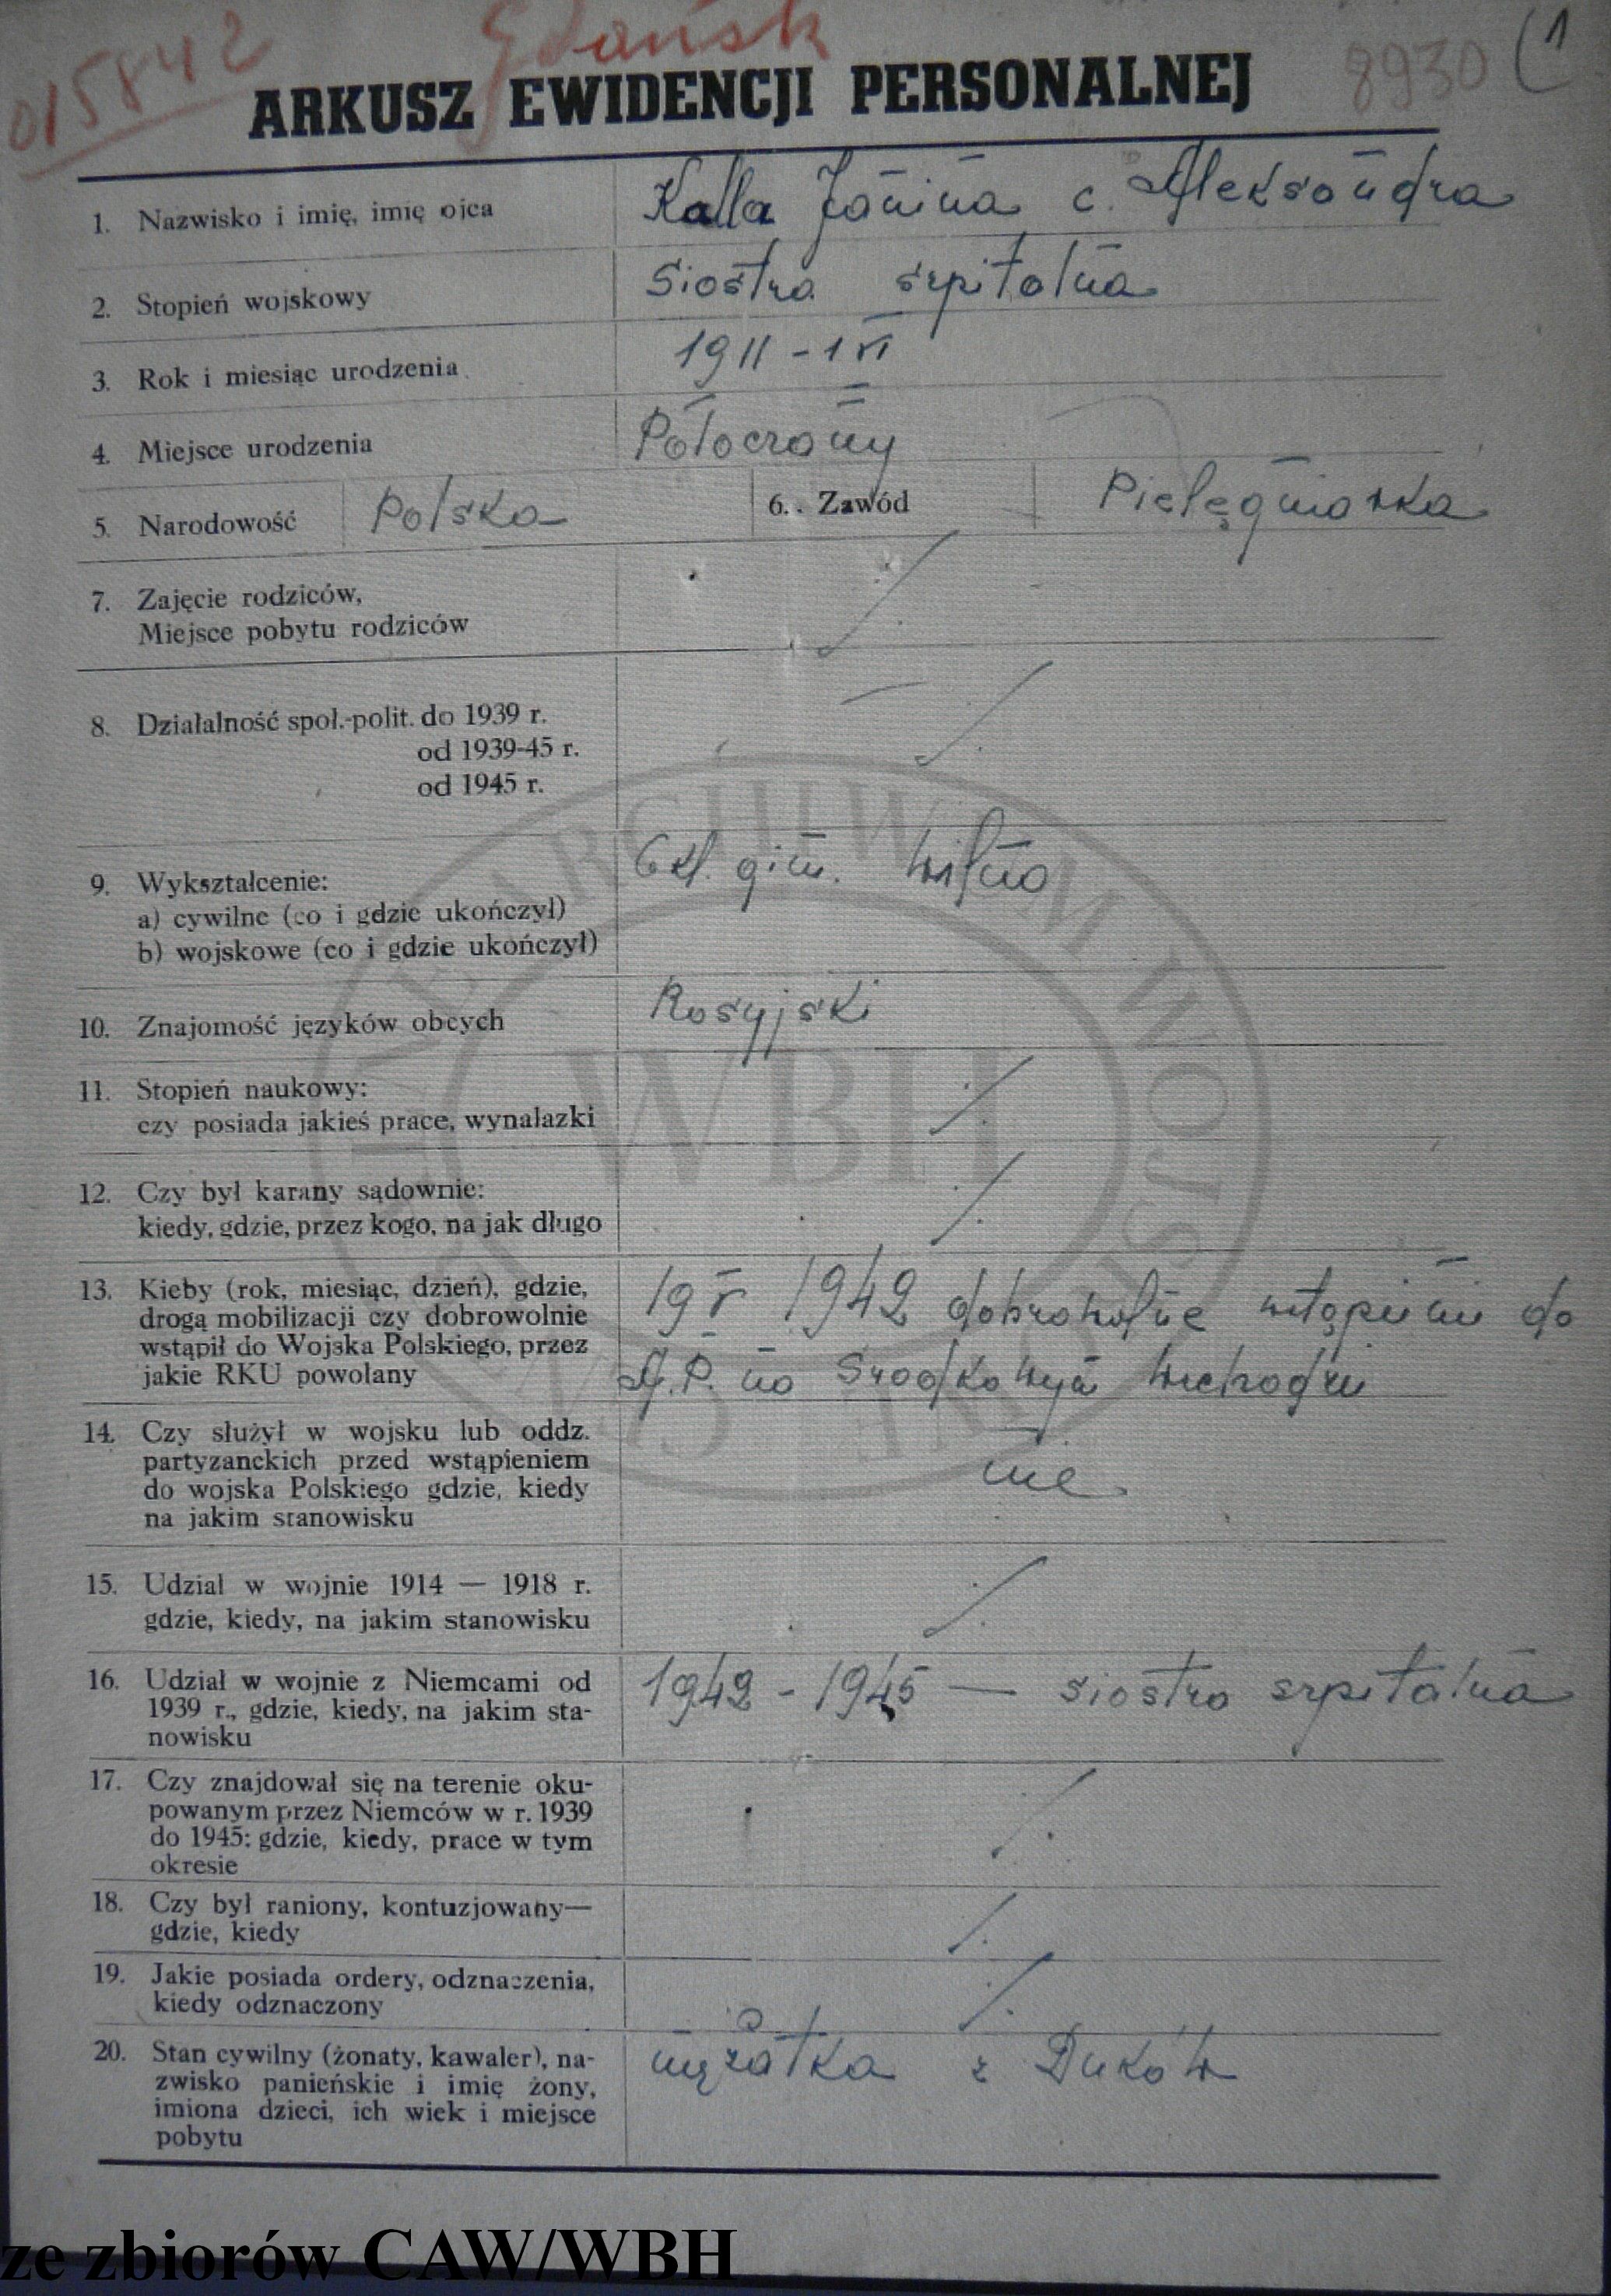 015842 Gdańsk 8930 (1
ARKUSZ EWIDENCJI PERSONALNEJ
1. Nazwisko i imię, imię ojca Kalla Janina c. Aleksandra
2. Stopień wojskowy Siostra szpitalna
3. Rok i miesiąc urodzenia 1911 - 1 VI
4. Miejsce urodzenia Połoczany
5. Narodowość Polska 6. Zawód Pielęgniarka
7. Zajęcie rodziców,
Miejsce pobytu rodziców
8. Działalność społ.-polit. do 1939 r.
od 1939-45 r.
od 1945 r.
9. Wykształcenie: 6 kl. gim. Wilno
a) cywilne (co i gdzie ukończył)
b) wojskowe (co i gdzie ukończył)
10. Znajomość języków obcych Rosyjski
11. Stopień naukowy:
czy posiada jakieś prace, wynalazki
12. Czy był karany sądownie:
kiedy, gdzie, przez kogo, na jak długo
13. Kieby (rok, miesiąc, dzień), gdzie,
drogą mobilizacji czy dobrowolnie
wstąpił do Wojska Polskiego, przez
jakie RKU powołany
19 V 1942 dobrowolnie do
A.P. na Środkowym Wschodzie
14. Czy służył w wojsku lub oddz.
partyzanckich przed wstąpieniem
do wojska Polskiego gdzie, kiedy
na jakim stanowisku
nie
15. Udział w wojnie 1914 — 1918 r.
gdzie, kiedy, na jakim stanowisku
16. Udział w wojnie z Niemcami od
1939 r., gdzie, kiedy, na jakim sta-
nowisku
1942 - 1945 — siostra szpitalna
17. Czy znajdował się na terenie oku-
powanym przez Niemców w r. 1939
do 1945: gdzie, kiedy, prace w tym
okresie
18. Czy był raniony, kontuzjowany—
gdzie, kiedy
19. Jakie posiada ordery, odznaczenia,
kiedy odznaczony
20. Stan cywilny (żonaty, kawaler), na-
zwisko panieńskie i imię żony,
imiona dzieci, ich wiek i miejsce
pobytu
mężatka z Duków
WBH
ze zbiorów CAW/WBH